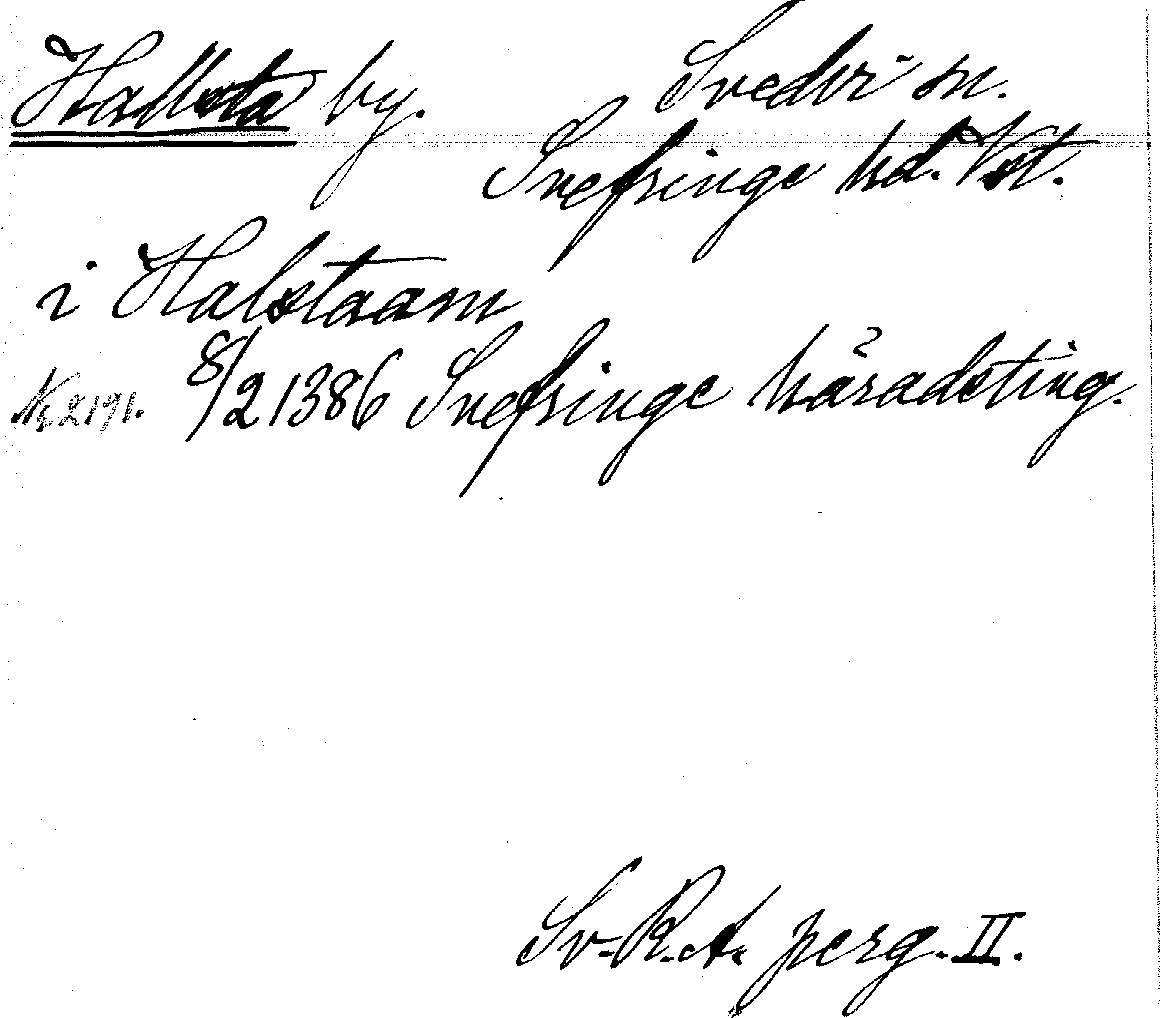 Hallsta by. Svedvi sn.
Snefringe hd. Vst.
i Halstaam
Nr 2191. 8/2 1386 Snefringe häradsting.
Sv. R. A. perg. II.